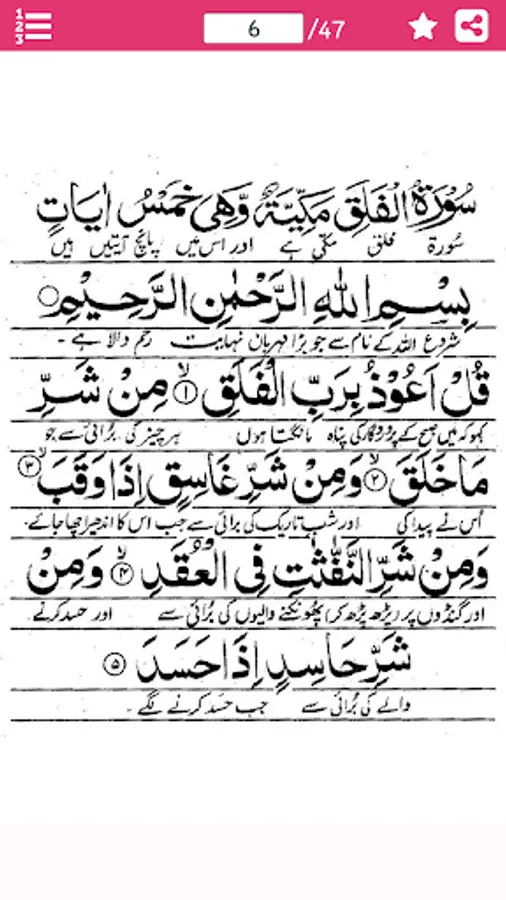 1
2
3
6 /47
سُوْرَةُ الْفَلَقِ مَكِّيَّةٌ وَّهِيَ خَمْسُ اٰيَاتٍ
سُورۃ فلق مکی ہے اور اس میں پانچ آیتیں ہیں
بِسْمِ اللّٰهِ الرَّحْمٰنِ الرَّحِيْمِ
شروع اللہ کے نام سے جو بڑا مہربان نہایت رحم والا ہے ۔
قُلْ اَعُوْذُ بِرَبِّ الْفَلَقِ ۱ مِنْ شَرِّ
کہو کہ میں صبح کے پروردگار کی پناہ مانگتا ہوں ہر چیز کی بُرائی سے جو
مَا خَلَقَ ۲ وَمِنْ شَرِّ غَاسِقٍ اِذَا وَقَبَ ۳
اُس نے پیدا کی اور شب تاریک کی برائی سے جب اس کا اندھیرا چھا جائے۔
وَمِنْ شَرِّ النَّفّٰثٰتِ فِي الْعُقَدِ ۴ وَمِنْ
اور گنڈوں پر پڑھ پڑھ کر پھونکنے والیوں کی بُرائی سے اور حسد کرنے
شَرِّ حَاسِدٍ اِذَا حَسَدَ ۵
والے کی بُرائی سے جب حسد کرنے لگے ۔